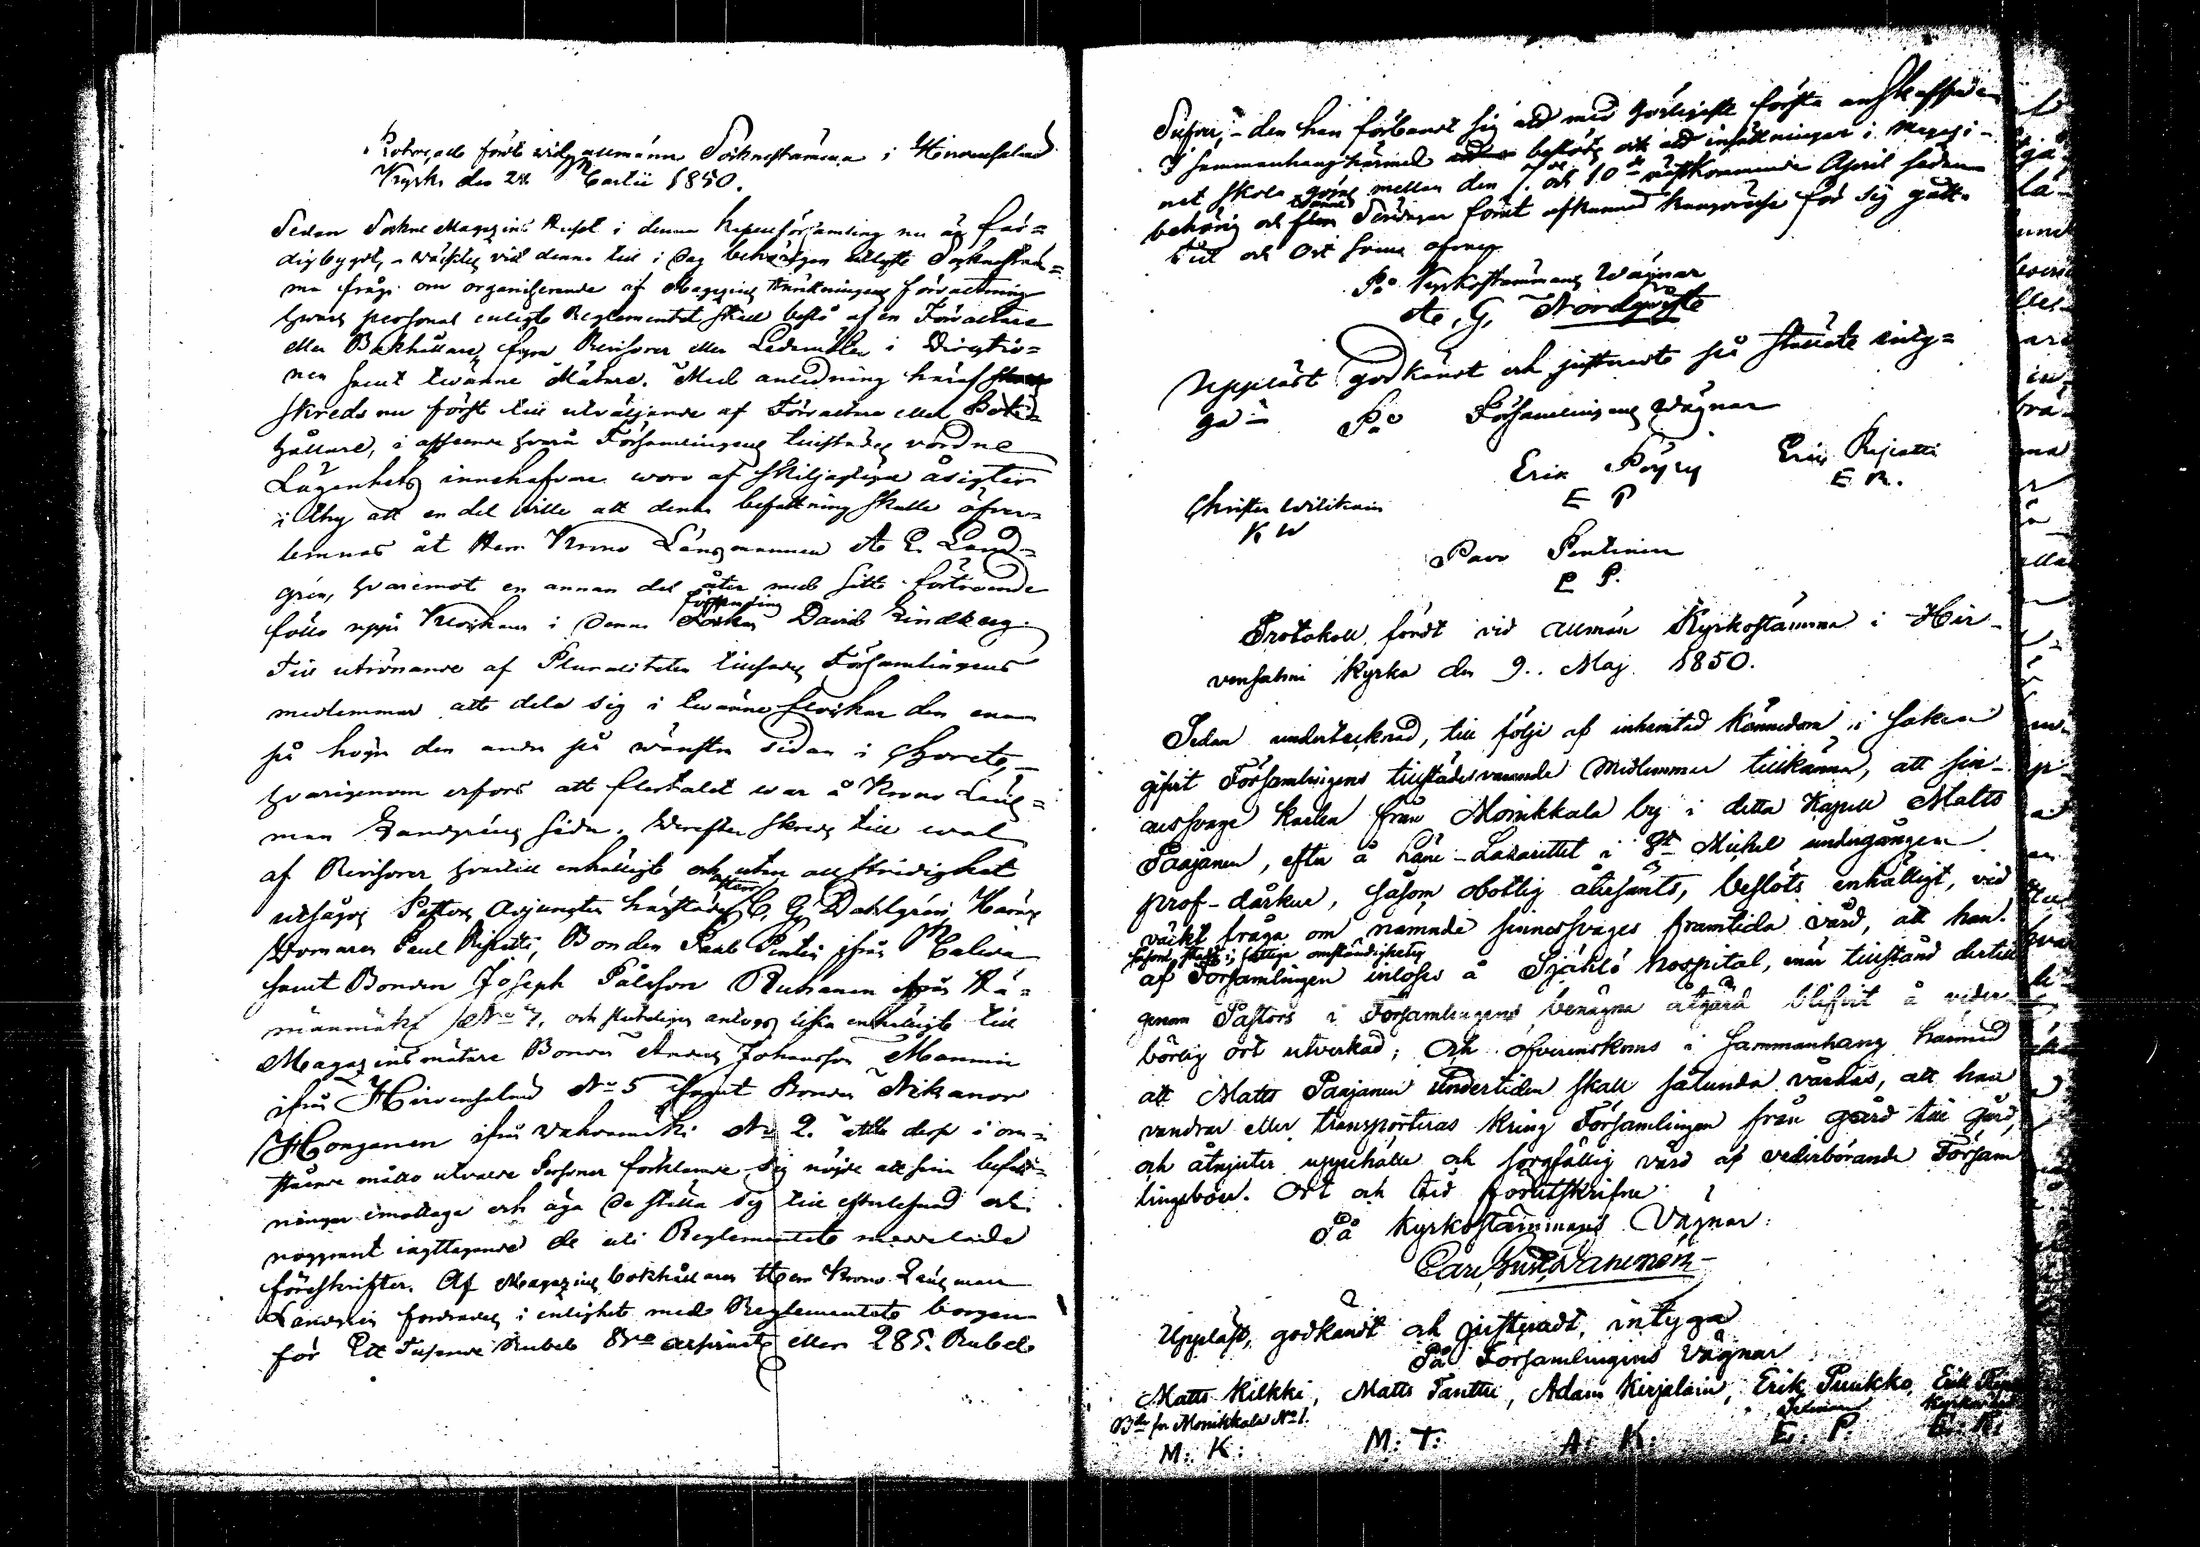 Protocoll fördt vid allmänna Socknestämma i Hirvensalmi
Kyrka den 24 Martii 1850.
Sedan Sockne Magazins Huset i denna Kapellförsamling nu är fär=
digbygdt, väcktes vid denna till i dag behörigen utlyste Socknestäm=
ma fråga om organiserande af Magazins Inrättningens förvaltning
hvars personal enligt Reglementet skall bestå af en Förvaltare
eller Bokhållare, fyra Revisorer eller Ledamöter i Direktio=
nen samt tvänne Mätare. Med anledning häraf
skreds nu först till utväljande af Förvaltare eller Bok=
hållare, i afseende hvarå Församlingens tillstädes vordne
Lägenhets innehafvare woro af skiljagtiga åsigter
i thy att en del wille att denna befattning skulle öfver=
lemnas åt Herr Krono Länsmannen A. E. Land=
grén, hvaremot en annan del åter med sitt förtroende
föllo uppå Klockaren i denna Församling David Lindberg.
Till utrönande af Pluraliteten tillsades Församlingens
medlemmar att dela sig i twänne flockar den ena
på högra den andra på wänstra sidan i Choret,
hvarigenom erfors att flertalet war å Krono Läns=
man Landgréns sida. Derefter skreds till wal
af Revisorer hvartill enhälligt och utan all stridighet
utsågos Pastors Adjuncten härstädes C. G. Dahlgrén, Härads
Domaren Paul Ripatti, Bonden Paul Pentin ifrån
samt Bonden Joseph Pålsson Ruhanen ifrån Hä=
männmäki No 7, och slutligen antogs lika enhälligt till
Magazins mätare Bonden Anders Johansson Manninen
ifrån Hirvensalmi No 5 samt Bonden Nikanor
Hongonen ifrån Vahvamäki No 2. Alla desse i om=
stående måtto utvalde Personer förklarade sig nöjde att sina befatt=
ningar emottaga och äga de ställa sig till efterlefnad och
noggrant iagttagande de uti Reglementet meddelade
föreskrifter. Af Magazins bokhållaren Herr Krono Länsman
Landgrén fordrades i enlighet med Reglementet borgen
för Ett Tusende Rubel Bco assignats eller 285. Rubel
Silfver, den han förband sig att med görligaste första anskaffa.
I sammanhang härmed beslöts och att insättningar i Magazi-
net skola göras mellan den 1. och 10de nästkommande April sedan
behörig och Tidningar förut afkunnad kungörelse för sig gått.
Tid och Ort som ofvan
På Kyrkostämmans Wägnar
A. G. Nordqvist
Uppläst godkändt och justeradt på stället intyg=
ga På Församlingens Wägnar
Erik Pöyry Eric Ripatti
E P E R.
Christer Wilikain
K W
Pavo Pentinen
P P.
Protokoll fördt vid allmän Kyrkostämma i Hir-
vensalmi Kyrka den 9. Maj 1850.
Sedan undertecknad, till följe af inhemtad kännedom i saken
gifvit Församlingens tillstädesvarande Medlemmar tillkänna, att sin-
nessvage karlen från Monikkala by i detta Kapell Matts
Paajanen, efter å Läns-Lazarettet i St Michel undergången
prof- dårkur, såsom obotlig återsänts, beslöts enhälligt, vid
väckt fråga om nämnde sinnessvages framtida vård, att han
såsom stadd i fattiga omständigheter
af Församlingen inlöses å Själö Hospital, enär tillstånd dertill
genom Pastors i Församlingens benägna åtgärd blifvit å veder-
börlig ort utverkad; Och öfverenskoms i sammanhang härmed
att Matts Paajanen undertiden skall sålunda vårdas, att han
vandrar eller transporteras kring Församlingen från gård till gård,
och åtnjuter uppehälle och sorgfällig vård af vederbörande Försam
lingsboer. Ort och tid förutskrifne
På Kyrkostämmans Vägnar:
Carl Gust. Wanénom
Uppläst, godkändt och justeradt, intyga
På Församlingens Vägnar
Matts Kilkki, Matts Tanttu, Adam Kirjalain, Erik Puukko, Erik
Bde fr Monikkala No 1. Kyrkovärd
M: K: M: T: A: K: E: P: E: R: